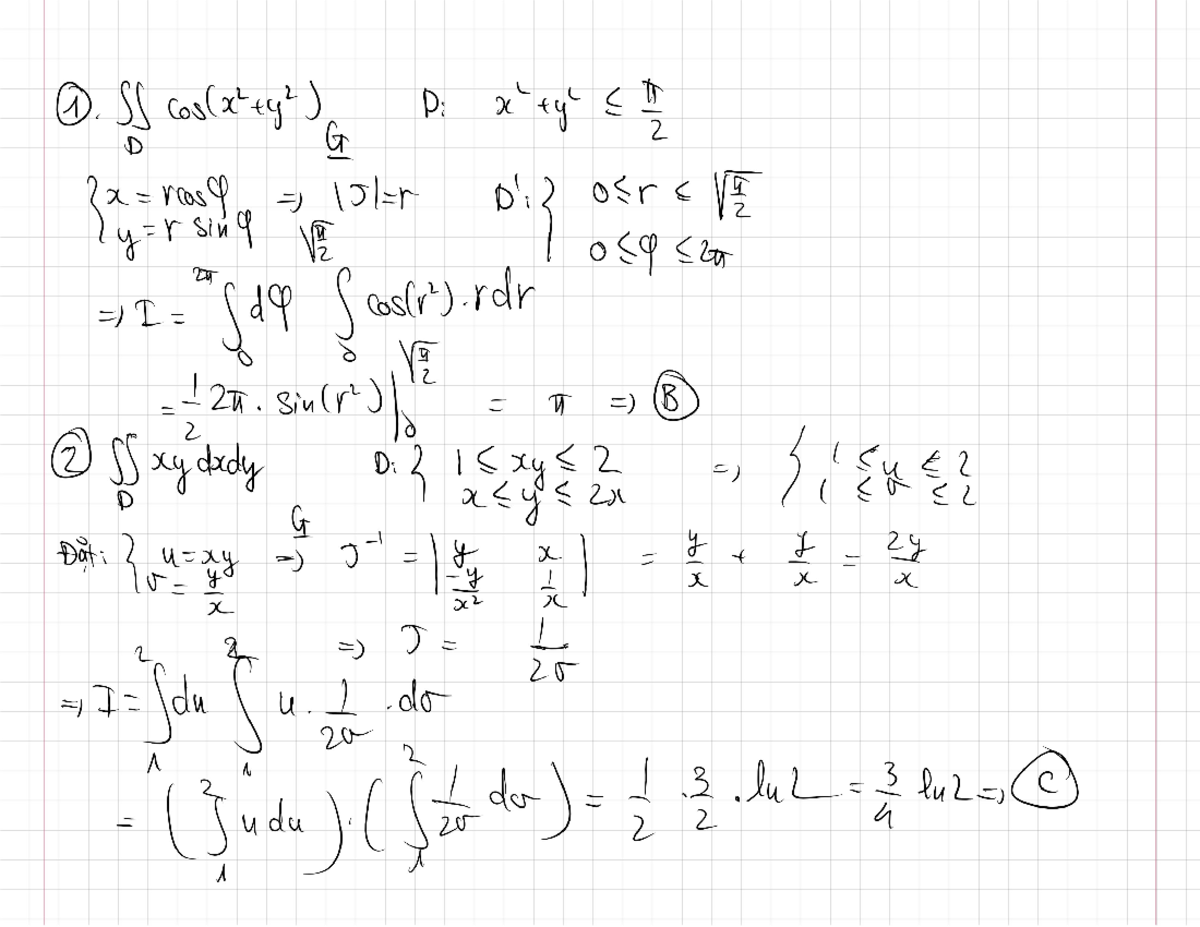 ①. ∬_D cos(x²+y²) D: x²+y² ≤ π/2
G
{ x = rcosφ ; y = r sinφ => |J|=r D': { 0≤r≤ √(π/2) ; 0≤φ≤2π
=> I = ∫_0^{2π} dφ ∫_0^{√(π/2)} cos(r²).rdr
= 1/2 2π. sin(r²) |_0^{√(π/2)} = π => Ⓑ
② ∬_D xy dxdy D: { 1≤ xy ≤ 2 ; x≤y≤ 2x => { 1 ≤u ≤ 2 ; 1 ≤ v ≤ 2
G
Đặt: { u=xy ; v = y/x => J⁻¹ = | y x ; -y/x² 1/x | = y/x + y/x = 2y/x
=> J = 1/2v
=> I = ∫_1^2 du ∫_1^2 u. 1/2v .dv
= (∫_1^2 u du).(∫_1^2 1/2v dv) = 1/2 .3/2 .ln2 = 3/4 ln2 => Ⓒ